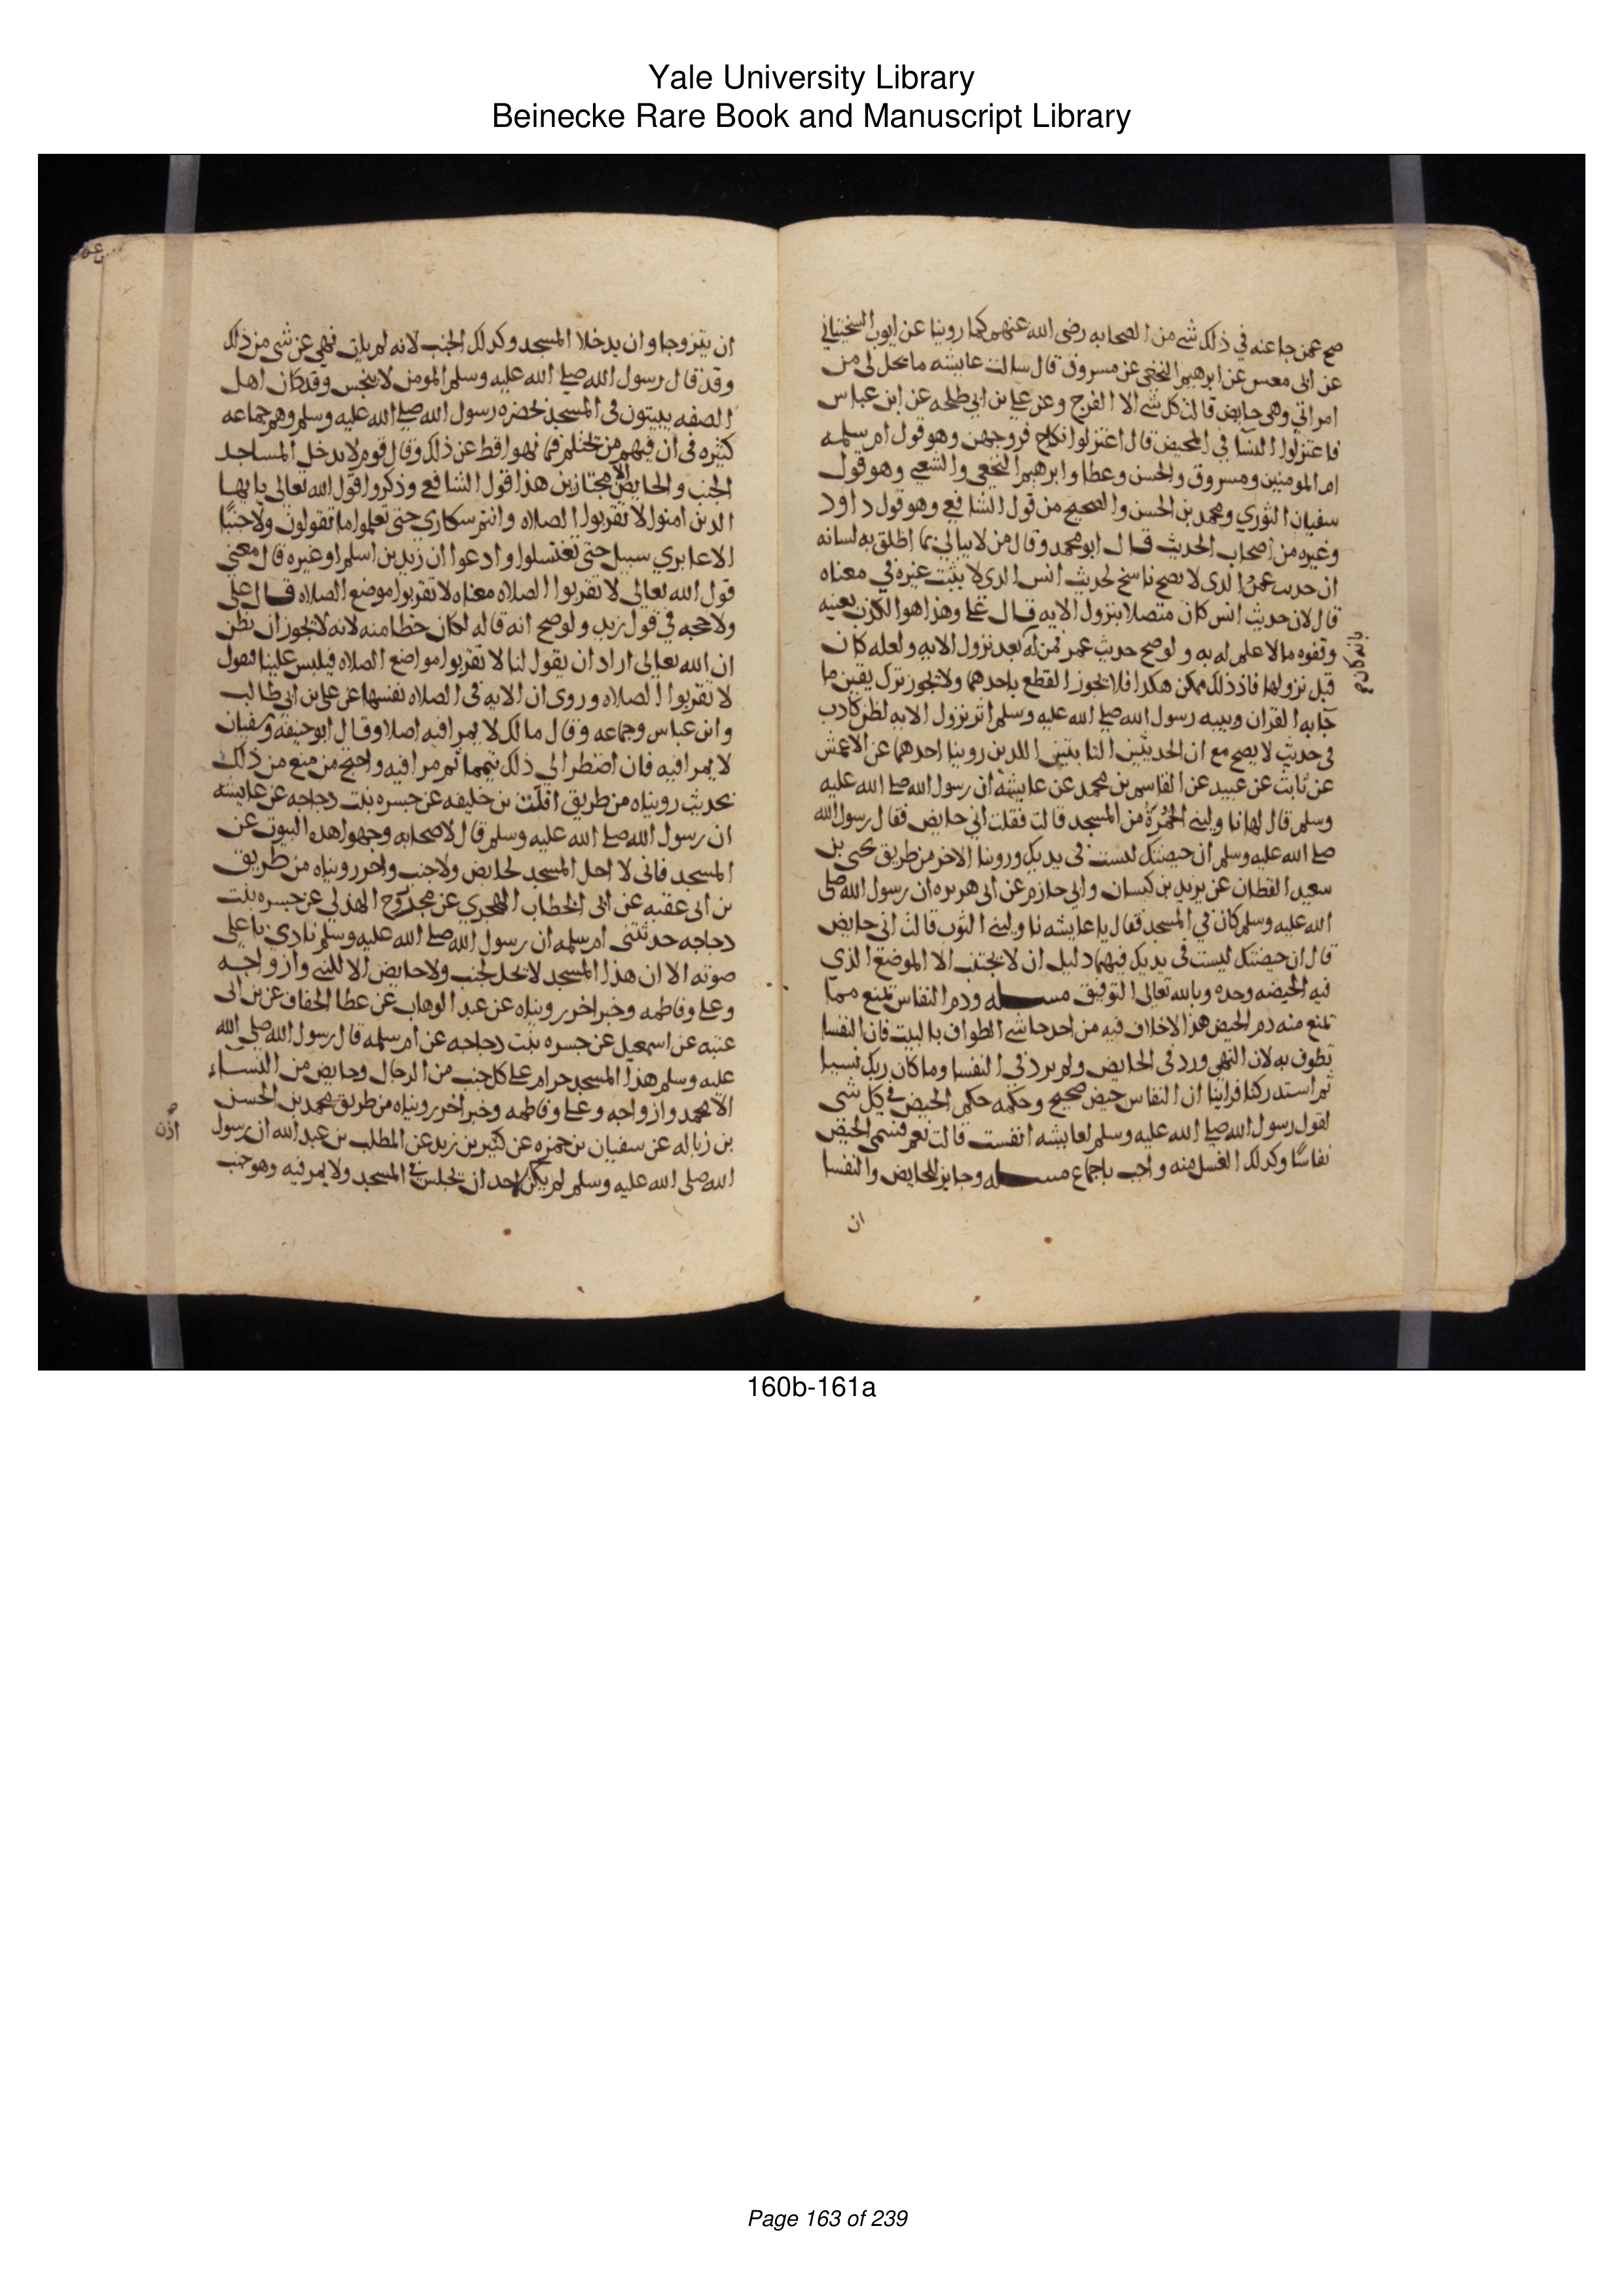 Yale University Library
Beinecke Rare Book and Manuscript Library
صح عمن جا عنه في ذلك شي من الصحابه رضى الله عنهم كما روينا عن ايوب السختياني
عن ابى معسر عن ابرهيم النخعي عن مسروق قال سالت عايشه ما يحل لى من
امراتي وهى حايض قالت كل شي الا الفرج وعن علي بن ابي طلحه عن ابن عباس
فاعتزلوا النسآ في المحيض قال اعتزلوا نكاح فروجهن وهو قول ام سلمه
ام المومنين ومسروق والحسن وعطا وابرهيم النخعي والشعبي وهو قول
سفيان الثوري ومحمد بن الحسن والصحيح من قول الشافعي وهو قول داود
وغيره من اصحاب الحديث قال ابو محمد وقال من لا يبالي بما اطلق به لسانه
ان حديث عمر الذى لا يصح ناسخ لحديث انس الذى لا يثبت غيره في معناه
قال لان حديث انس كان متصلا بنزول الايه قال علي وهذا هو الكذب بعينه
وتقوه ما لا علم له به ولو صح حديث عمر فمن له بعد نزول الايه ولعله كان
قبل نزولها فاذ ذلك ممكن هكذا فلا يجوز القطع باحدهما ولا يجوز ترك يقين ما
جآ به القران وبينه رسول الله صلى الله عليه وسلم اثر نزول الايه لظن كاذب
في حديث لا يصح مع ان الحديثين الثابتين اللدين روينا احدهما عن الاعمش
عن ثابت عن عبيد عن القاسم بن محمد عن عايشه ان رسول الله صلى الله عليه
وسلم قال لها ناوليني الخُمْرَةَ من المسجد قالت فقلت اني حايض فقال رسول الله
صلى الله عليه وسلم ان حيضتك ليست في يديك وروينا الاخر من طريق يحيى بن
سعيد القطان عن يزيد بن كيسان وابي حازم عن ابى هريره ان رسول الله صلى
الله عليه وسلم كان في المسجد فقال يا عايشه ناوليني الثوب قالت انى حايض
قال ان حيضتك ليست في يديك فيهما دليل ان لا يجتنب الا الموضع الذي
فيه الحيضه وحده وبالله تعالى التوفيق مسـله ودم النفاس يمنع مما
يمنع منه دم الحيض هذا لا خلاف فيه من احد حاشي الطواف بالبيت فان النفسا
تطوف به لان النهي ورد فى الحايض ولم يرد فى النفسا وما كان ربك نسيا
ثم استدركنا فراينا ان النفاس حيض صحيح وحكمه حكم الحيض في كل شى
لقول رسول الله صلى الله عليه وسلم لعايشه انفست قالت نعم فسمى الحيض
نفاسًا وكذلك الغسل منه واجب باجماع مسـله وجايز للحايض والنفسا
ان
ان يتزوجا وان يدخلا المسجد وكذلك الجنب لانه لم يات نهي عن شى من ذلك
وقد قال رسول الله صلى الله عليه وسلم المومن لا ينجس وقد كان اهل
الصفه يبيتون فى المسجد بحضره رسول الله صلى الله عليه وسلم وهم جماعه
كثيره فى ان فيهم من يحتلم فما نهوا قط عن ذلك وقال قوم لا يدخل المساجد
الجنب والحايض الا مجتازين هذا قول الشافعي وذكروا قول الله تعالى يا يها
الذين امنوا لا تقربوا الصلاه وانتم سكارى حتى تعلموا ما تقولون ولا جنبًا
الا عابري سبيل حتى تغتسلوا وادعوا ان زيد بن اسلم او غيره قال معنى
قول الله تعالى لا تقربوا الصلاه معناه لا تقربوا موضع الصلاه قال علي
ولا حجه في قول زيد ولو صح انه قاله لكان خطا منه لانه لا يجوز ان يظن
ان الله تعالى اراد ان يقول لنا لا تقربوا مواضع الصلاه فيلبس علينا فيقول
لا تقربوا الصلاه وروى ان الايه فى الصلاه نفسها عن علي بن ابى طالب
وابن عباس وجماعه وقال مالك لا يمرا فيه اصلا وقال ابو حنيفه وسفيان
لا يمرا فيه فان اضطر الى ذلك تيمما ثم مرا فيه واحتج من منع من ذلك
بحديث رويناه من طريق افلت بن خليفه عن جسره بنت دجاجه عن عايشه
ان رسول الله صلى الله عليه وسلم قال لاصحابه وجهوا هذه البيوت عن
المسجد فانى لا احل المسجد لحايض ولا جنب واخر رويناه من طريق
بن ابى عقبه عن ابى الخطاب الهجري عن مجدوح الهذلي عن جسره بنت
دجاجه حدثتنى ام سلمه ان رسول الله صلى الله عليه وسلم نادى باعلى
صوته الا ان هذا المسجد لا يحل لجنب ولا حايض الا للنبي وازواجه
وعلي وفاطمه وخبر اخر رويناه عن عبد الوهاب عن عطا الخفاف عن بن ابى
عتبه عن اسمعيل عن جسره بنت دجاجه عن ام سلمه قال رسول الله صلى الله
عليه وسلم هذا المسجد حرام على كل جنب من الرجال وحايض من النساء
الا محمد وازواجه وعلي وفاطمه وخبر اخر رويناه من طريق محمد بن الحسن
بن زباله عن سفيان بن حمزه عن كثير بن زيد عن المطلب بن عبد الله ان رسول
الله صلى الله عليه وسلم لم يكن لاحد ان يجلس في المسجد ولا يمر فيه وهو جنب
160b-161a
Page 163 of 239